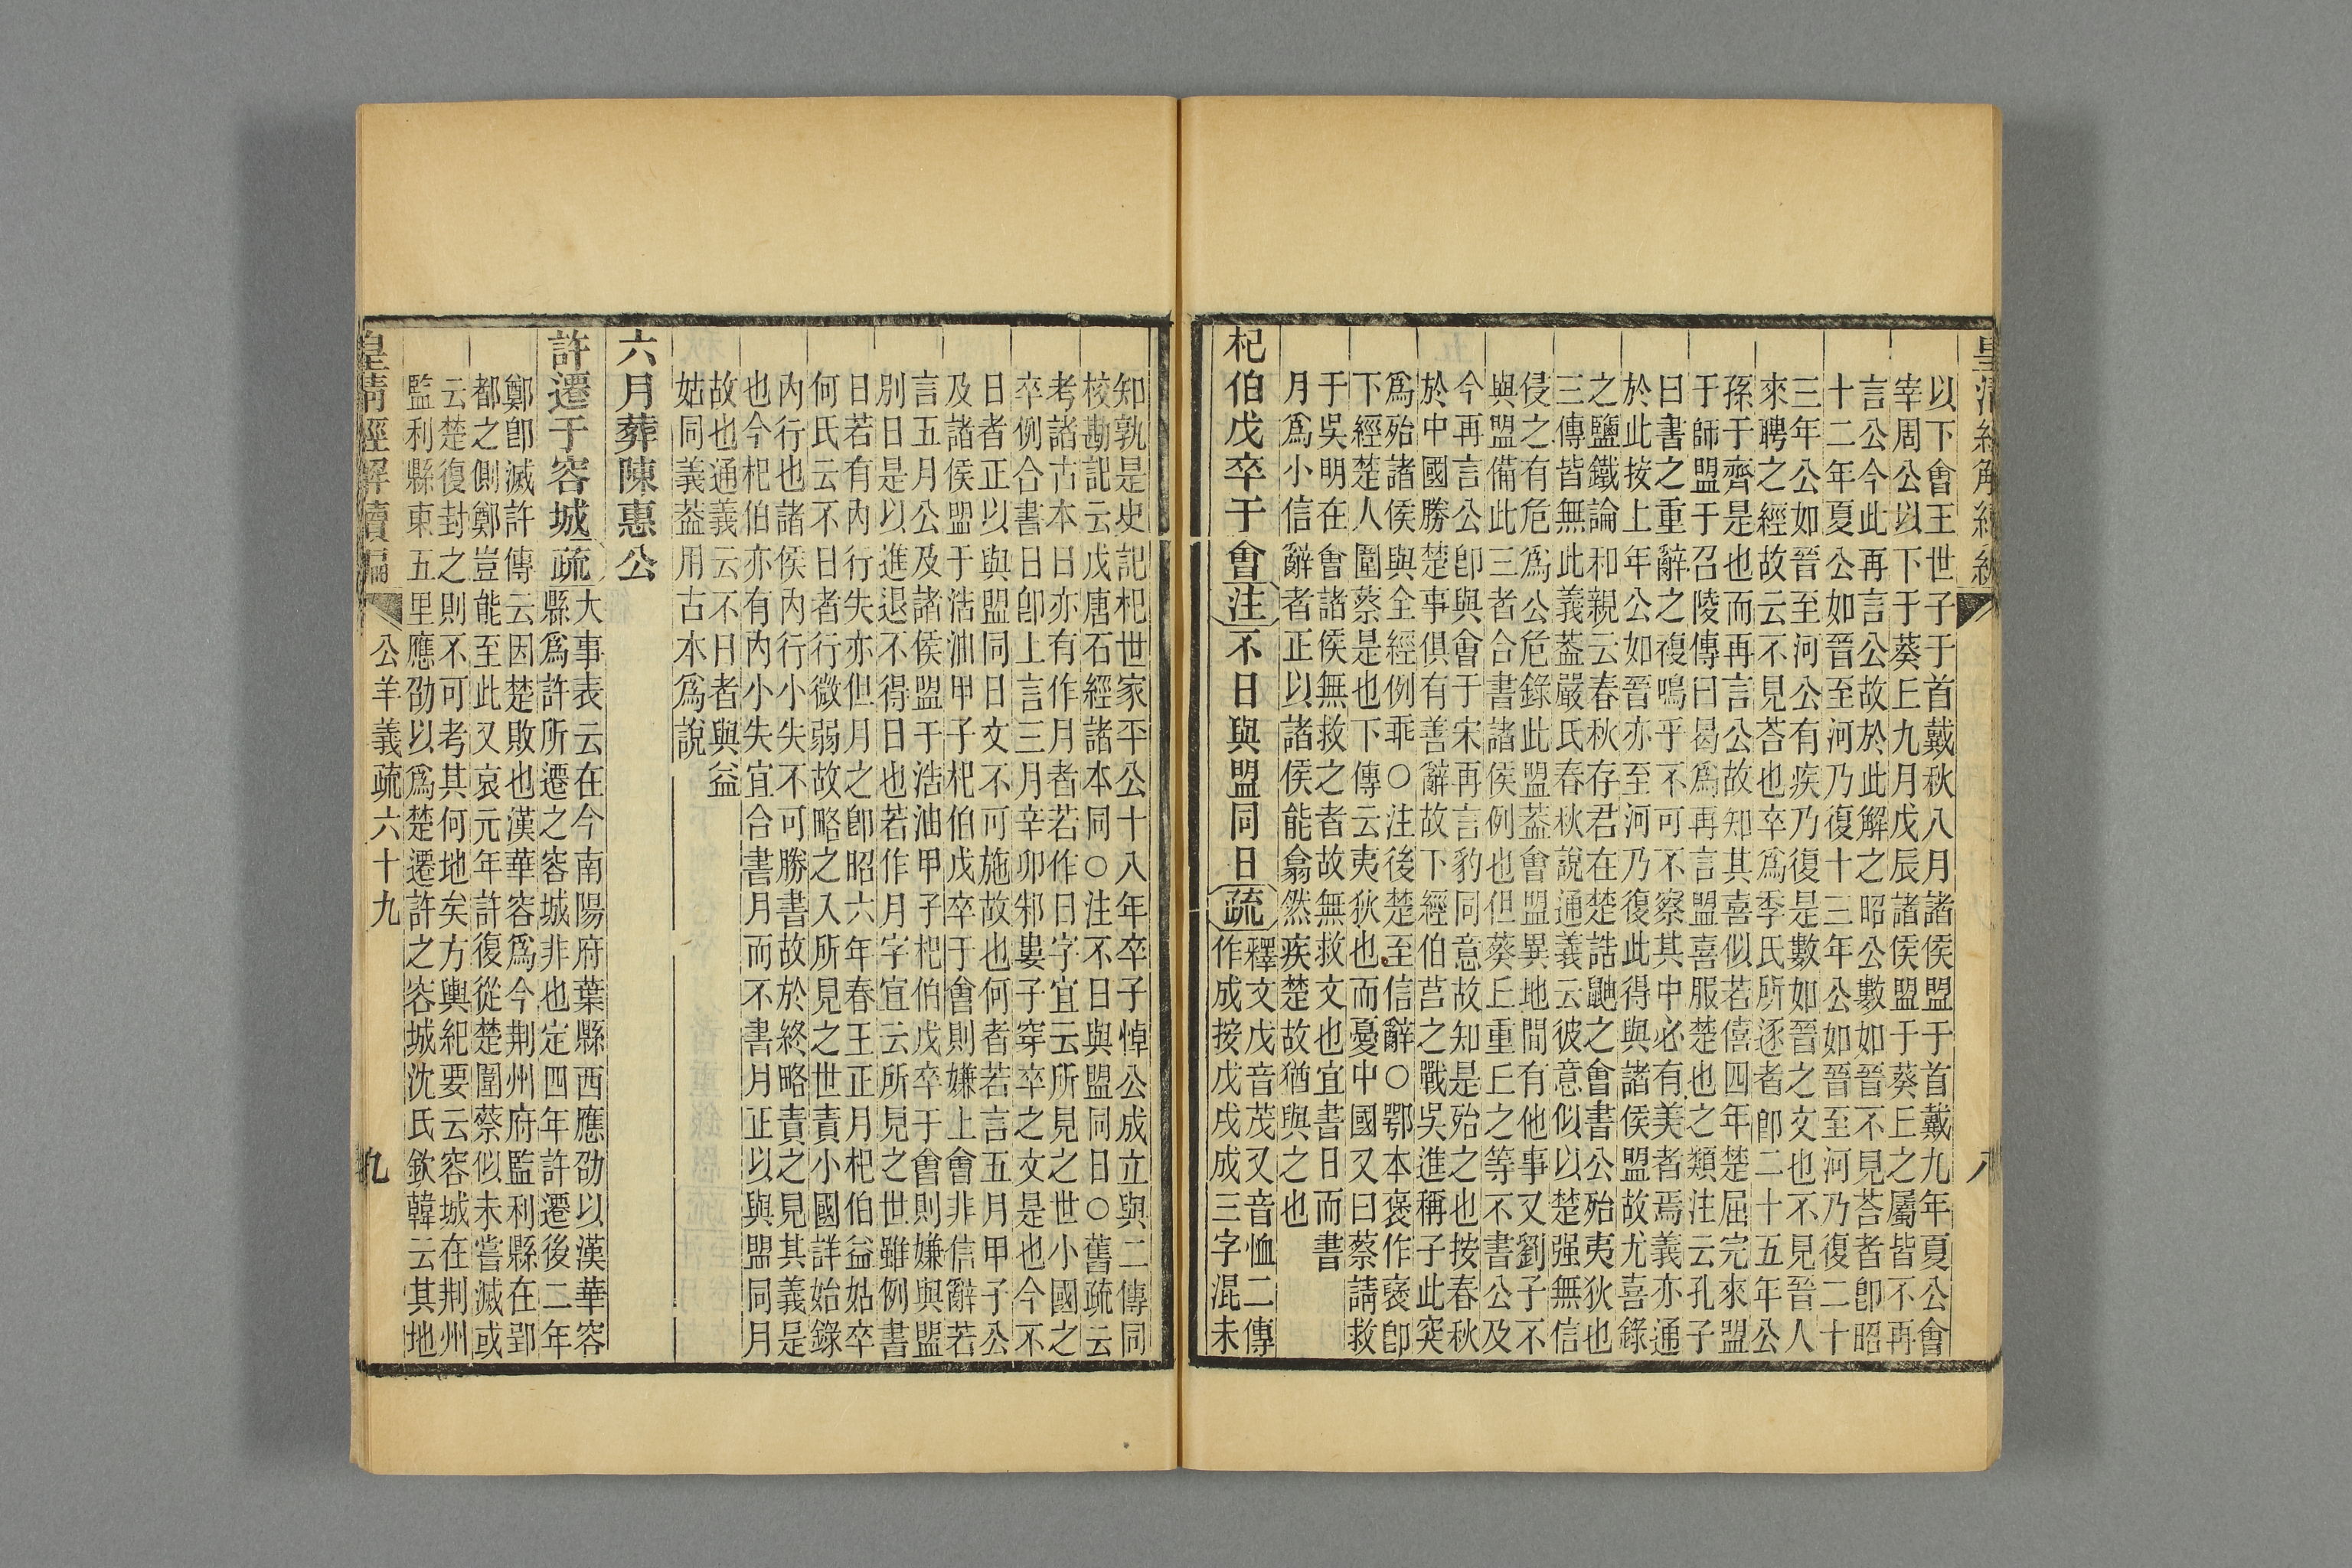 皇清經解續編
八
以下會王世子于首戴秋八月諸侯盟于首戴九年夏公會
宰周公以下于葵丘九月戊辰諸侯盟于葵丘之屬皆不再
言公今此再言公故於此解之昭公數如晉不見荅者卽昭
十二年夏公如晉至河乃復十三年公如晉至河乃復二十
三年公如晉至河公有疾乃復是數如晉之文也不見晉人
來聘之經故云不見荅也卒爲季氏所逐者卽二十五年公
孫于齊是也而再言公故知其喜似若僖四年楚屈完來盟
于師盟于召陵傳曰曷爲再言盟喜服楚也之類注云孔子
曰書之重辭之複嗚乎不可不察其中必有美者焉義亦通
於此按上年公如晉亦至河乃復此得與諸侯盟故尤喜錄
之鹽鐵論和親云春秋存君在楚誥鼬之會書公殆夷狄也
三傳皆無此義葢嚴氏春秋說通義云彼意似以楚强無信
侵之有危爲公危錄此盟葢會盟異地閒有他事又劉子不
與盟備此三者合書諸侯例也但葵丘重丘之等不書公及
今再言公卽與會于宋再言豹同意故知是殆之也按春秋
於中國勝楚事俱有善辭故下經伯莒之戰吳進稱子此突
爲殆諸侯與全經例乖○注後楚至信辭○鄂本褒作裦卽
下經楚人圍蔡是也下傳云夷狄也而憂中國又曰蔡請救
于吳明在會諸侯無救之者故無救文也宜書日而書
月爲小信辭者正以諸侯能翕然疾楚故猶與之也
杞伯戊卒于會注不日與盟同日疏釋文戊音茂又音恤二傳
作成按戊戌成三字混未
知孰是史記杞世家平公十八年卒子悼公成立與二傳同
校勘記云戊唐石經諸本同○注不日與盟同日○舊疏云
考諸古本日亦有作月者若作日字宜云所見之世小國之
卒例合書日卽上言三月辛卯邾婁子穿卒之文是也今不
日者正以與盟同日文不可施故也何者若言五月甲子公
及諸侯盟于浩油甲子杞伯戊卒于會則嫌上會非信辭若
言五月公及諸侯盟于浩油甲子杞伯戊卒于會則嫌與盟
別日是以進退不得日也若作月字宜云所見之世雖例書
日若有內行失亦但月之卽昭六年春王正月杞伯益姑卒
何氏云不日者行微弱故略之入所見之世責小國詳始錄
內行也諸侯內行小失不可勝書故於終略責之見其義是
也今杞伯亦有內小失宜合書月而不書月正以與盟同月
故也通義云不日者與益
姑同義葢用古本爲說
六月葬陳惠公
許遷于容城疏大事表云在今南陽府葉縣西應劭以漢華容
縣爲許所遷之容城非也定四年許遷後二年
鄭卽滅許傳云因楚敗也漢華容爲今荆州府監利縣在郢
都之側鄭豈能至此又哀元年許復從楚圍蔡似未嘗滅或
云楚復封之則不可考其何地矣方輿紀要云容城在荆州
監利縣東五里應劭以爲楚遷許之容城沈氏欽韓云其地
皇清經解續編
公羊義疏六十九
九